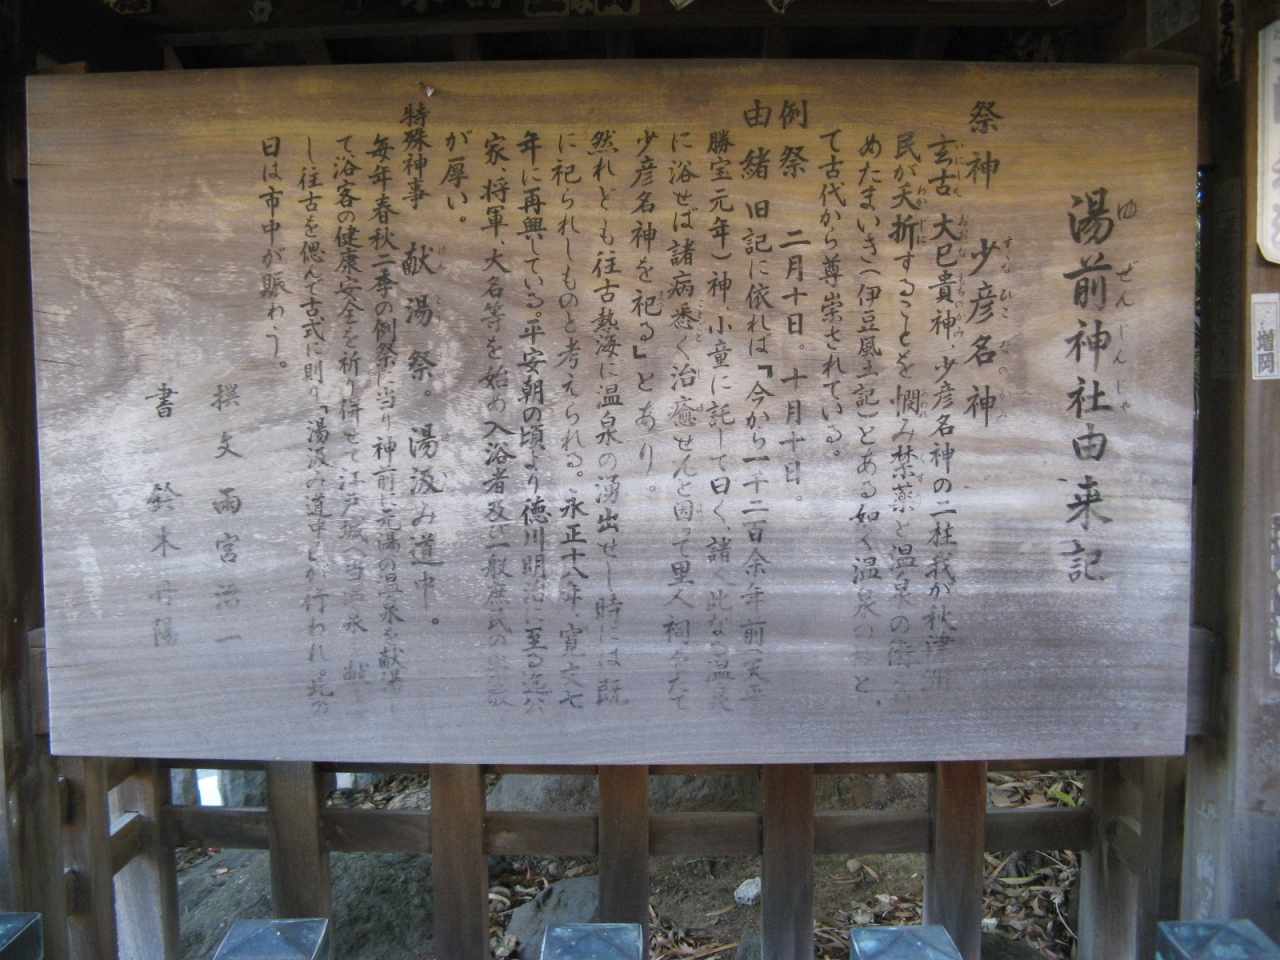 湯前神社由来記
祭神　少彦名神
玄古　大巳貴神、少彦名神の二柱我が秋津洲
民が夭折することを憫み禁薬と温泉の術を
めたまいき(伊豆風土記)とある如く温泉の神と、
て古代から尊崇されている。
例祭　二月十日。十月十日。
由緒　旧記に依れば「今から一千二百余年前(天平
勝宝元年)神、小童に託して曰く、諸く此なる温泉
に浴せば諸病悉く治癒せんと因って里人祠をたて
少彦名神を祀る」とあり。
然れども往古熱海に温泉の湧出せし時には既
に祀られしものと考えられる。永正十八年、寛文七
年に再興している。平安朝の頃より徳川明治に至る迄公
家、将軍、大名等を始め入浴者及び一般庶民の
が厚い。
特殊神事　献湯祭。湯汲み道中。
毎年春秋二季の例祭に当り神前に元湯の温泉を献湯し
て浴客の健康安全を祈り併せて江戸城へ当温泉を献
し往古を偲んで古式に則り「湯汲み道中」が行われ。此の
日は市中が賑わう。
撰文　雨宮治一
書　鈴木丹陽
増岡